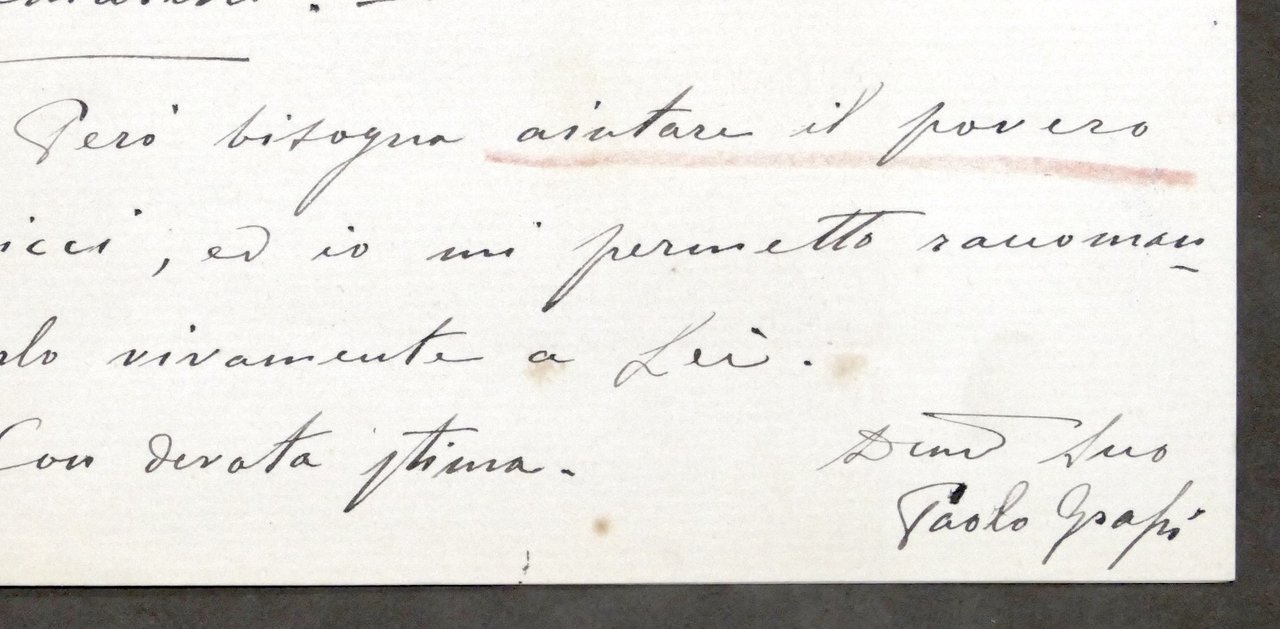 Però bisogna aiutare il povero
icci, ed io mi permetto raccoman-
rlo vivamente a Lei.
Con devota stima. Suo
Paolo